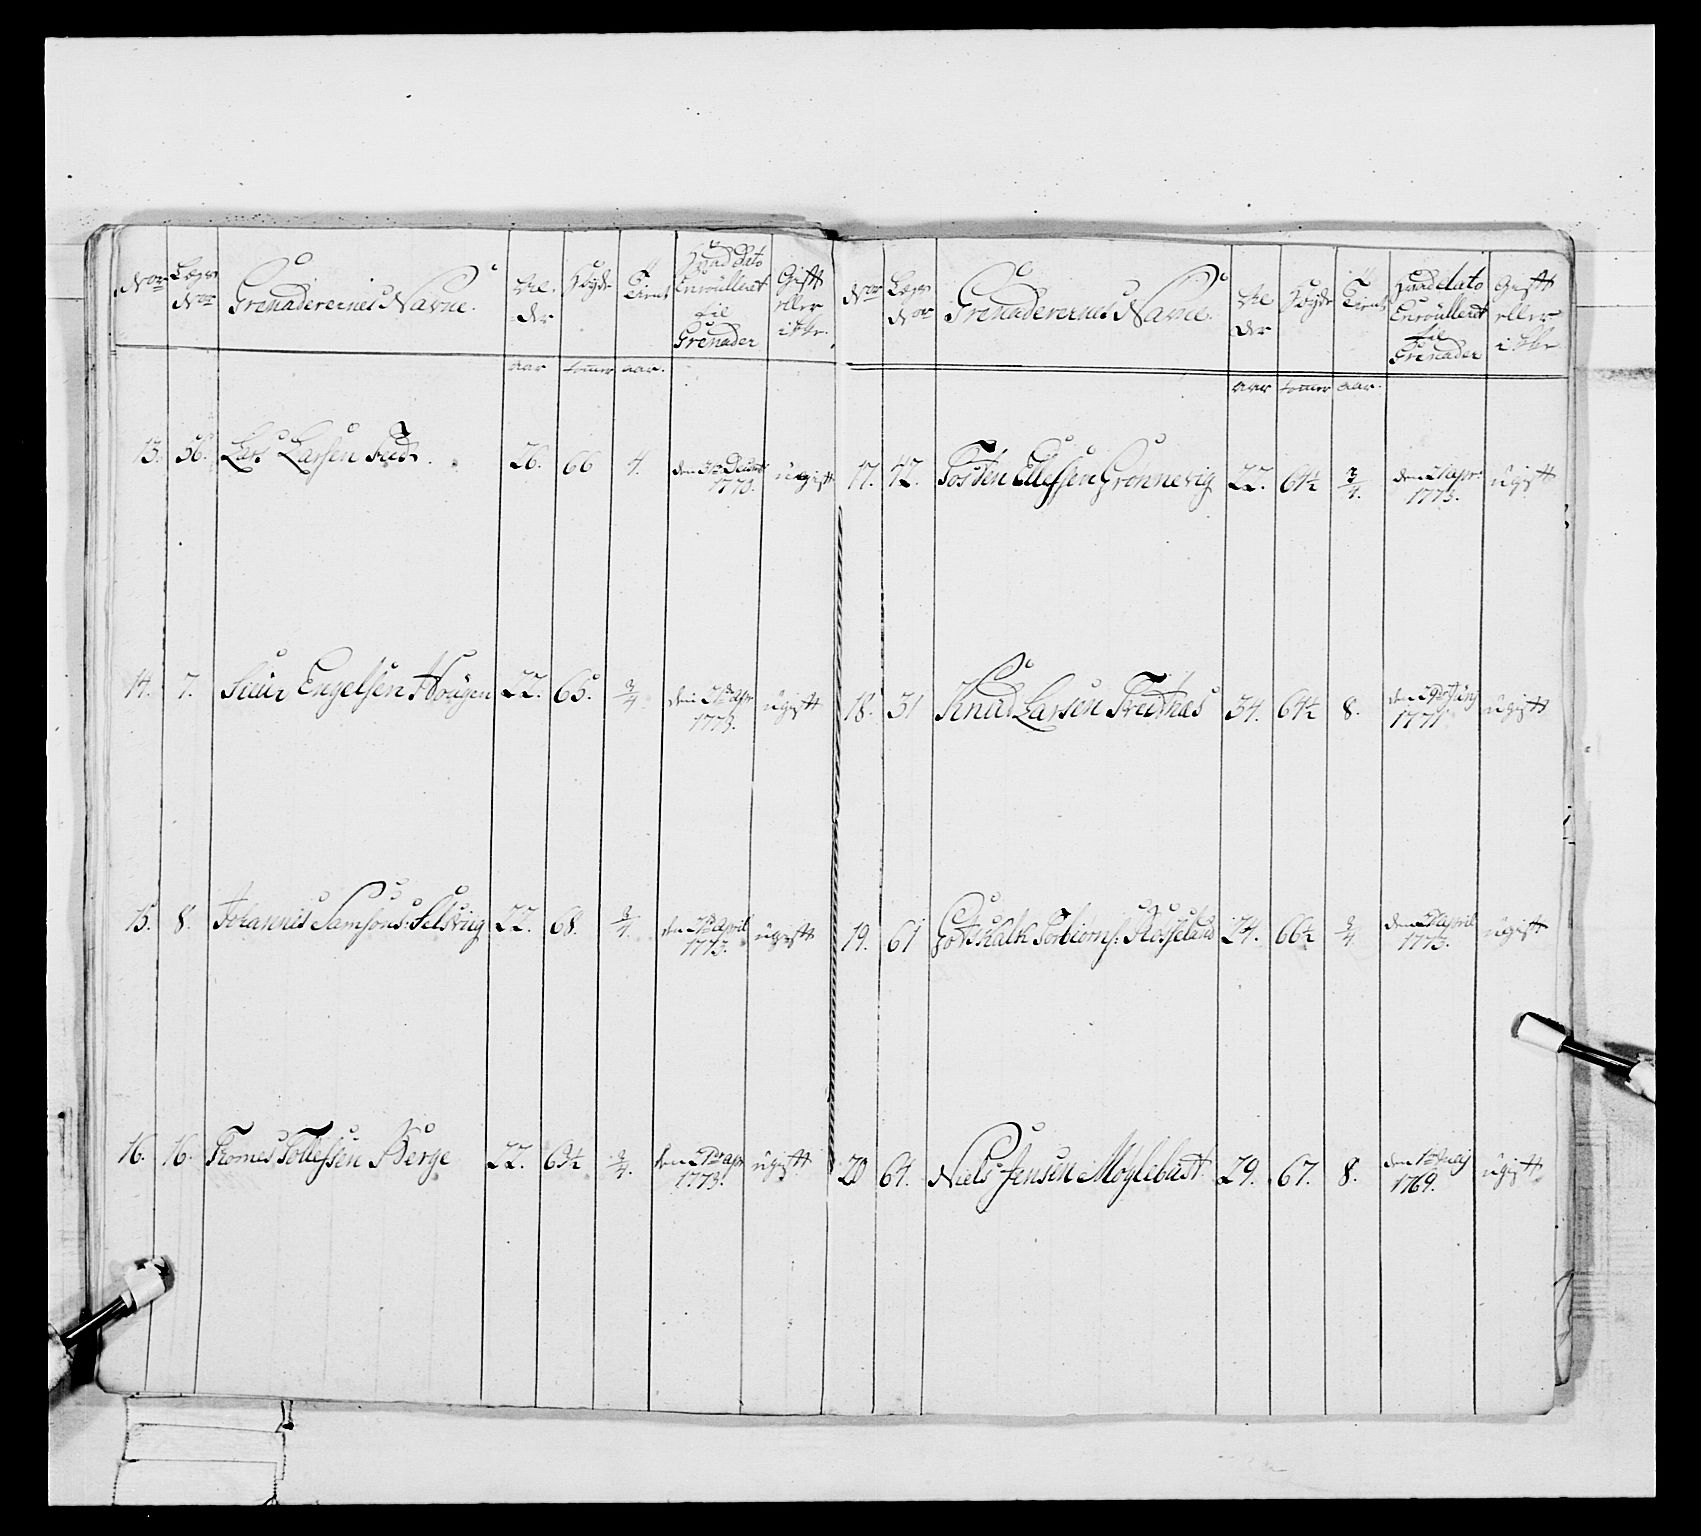 Nor Lægs Nor Grenaderernes Navne. Al der Høyde Tient Hvad Dato Enroulleret til Grenader Gift eller ikke.
aar tommer aar.
13. 56. Lars Larsen 26. 66 4. 1770. ugift
14. 7. Siur Engelsen Hougen 22. 65. 3/4 den 21de Apr 1773. ugift
15. 8. Johannes Samsons: Selsviig 22. 68. 3/4. den 21de April 1773. ugift
16. 16. Tomes Tollefsen Berge 22. 63½ 3/4. den 21de apr 1773. ugift
Nor Lægs Nor Grenaderernes Navne. Al der Høyde Tient Hvad dato Enroulleret til Grenader Gift eller ikke
aar tommer aar.
17. 42. Tosten Ellefsen Gronnevig 22. 64½ 3/4. den 21 Apr: 1773. ugift
18. 31 Knud Larsen Treitnæs 34. 64½ 8. 1771 ugift
19. 61 Gotskalk Torbiorns: Rosseland 24. 66½ 3/4 den 21 April 1773. ugift
20 64. Niels Jensen Moglebust 29. 67. 8. 1769. ugift